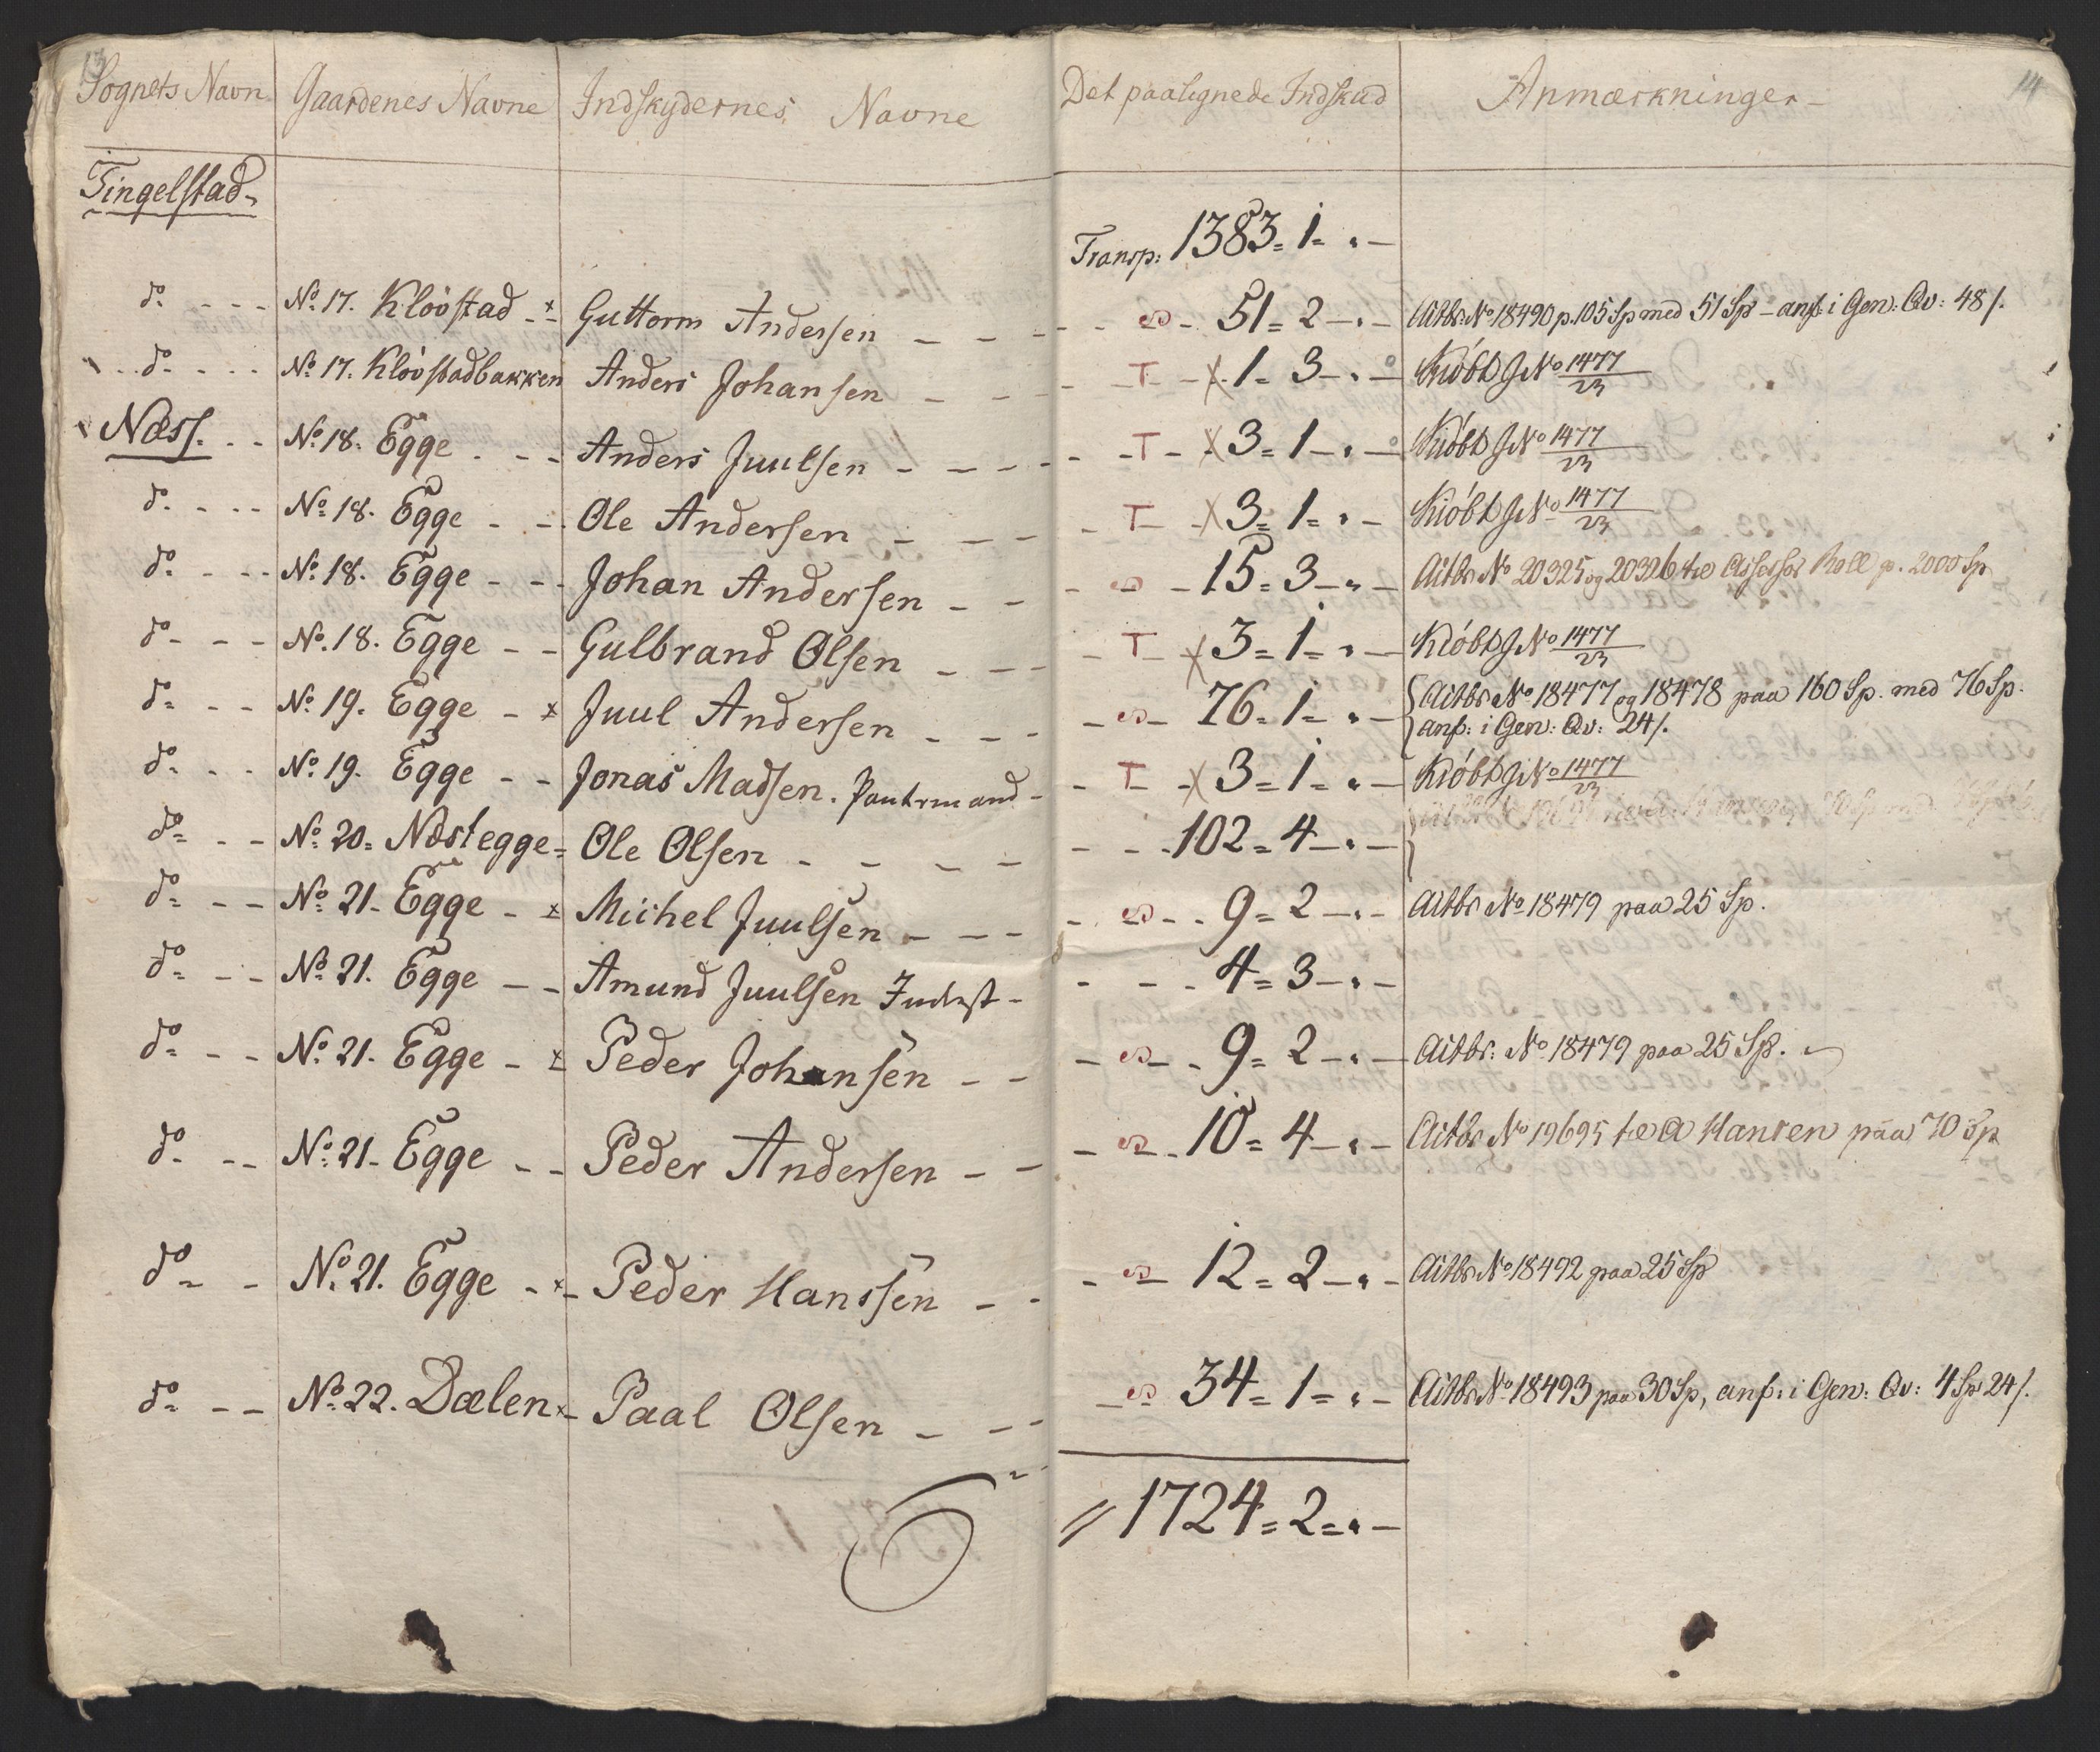 13 14
Sognets Navn Gaardenes Navne Indskydernes Navne Det paalignede Indskud Anmærkninger
Tingelstad
Transp: 1383 = 1 = " –
do - - - No 17. Klövstad - x Guttorm Andersen - - - 51 = 2 – " – Actbr. No 18490 p. 105 Sp med 51 Sp – anf. i Gen: Qv: 48 s.
do - - - No 17. Klövstadbakken Anders Johansen - - T - X 1 = 3 – " – Kiöbt JNo 1477/23
Næss. - - No 18. Egge - - - Anders Juulsen - - - - T - X 3 = 1 – " – Kiöbt JNo 1477/23
do - - - No 18. Egge - - Ole Andersen - - - T - X 3 = 1 = " – Kiöbt JNo 1477/23
do - - - No 18. Egge - - - Johan Andersen - - - 15 = 3 – " – Actbr No 20325 og 20326 Assessor p. 2000 Sp
do - - - No 18. Egge - - Gulbrand Olsen - - - T - X 3 = 1 = " – Kiöbt JNo 1477/23
do - - - No 19. Egge - x Juul Andersen - - - 76 = 1 = " – Actbr No 18477 og 18478 paa 160 Sp. med 76 Sp.
anf: i Gen: Qv: 24 s.
do - - - No 19. Egge - - Jonas Madsen. - T - X 3 = 1 = " – Kiöbt JNo 1477/23
do - - No 20. Næstegge = Ole Olsen - - - - 102 = 4 – " –
do - - No 21. Egge - x Michel Juulsen - - - 9 = 2 – " – Actbr No 18479 paa 25 Sp.
do - - No 21. Egge - - Amund Juulsen Inderst - - - 4 = 3 – " –
do - - No 21. Egge - x Peder Johansen - - 9 = 2 – " – Actbr: No 18479 paa 25 Sp.
do - - No 21. Egge - - Peder Andersen - - 10 = 4 – " – Actbr No 19695 A Hansen paa 70 Sp
do - No 21. Egge - x Peder Hanssen - - 12 = 2 – " – Actbr No 18492 paa 25 Sp
do - - No 22. Dælen x Paal Olsen - - - 34 = 1 = " – Actbr No 18493 paa 30 Sp, anf: i Gen: Qv: 4 Sp 24 s.
// 1724 = 2 = " –